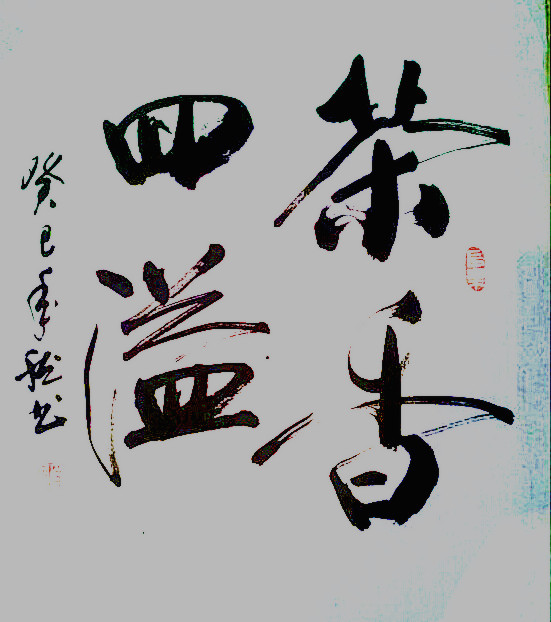 茶香
四溢
癸巳年
书